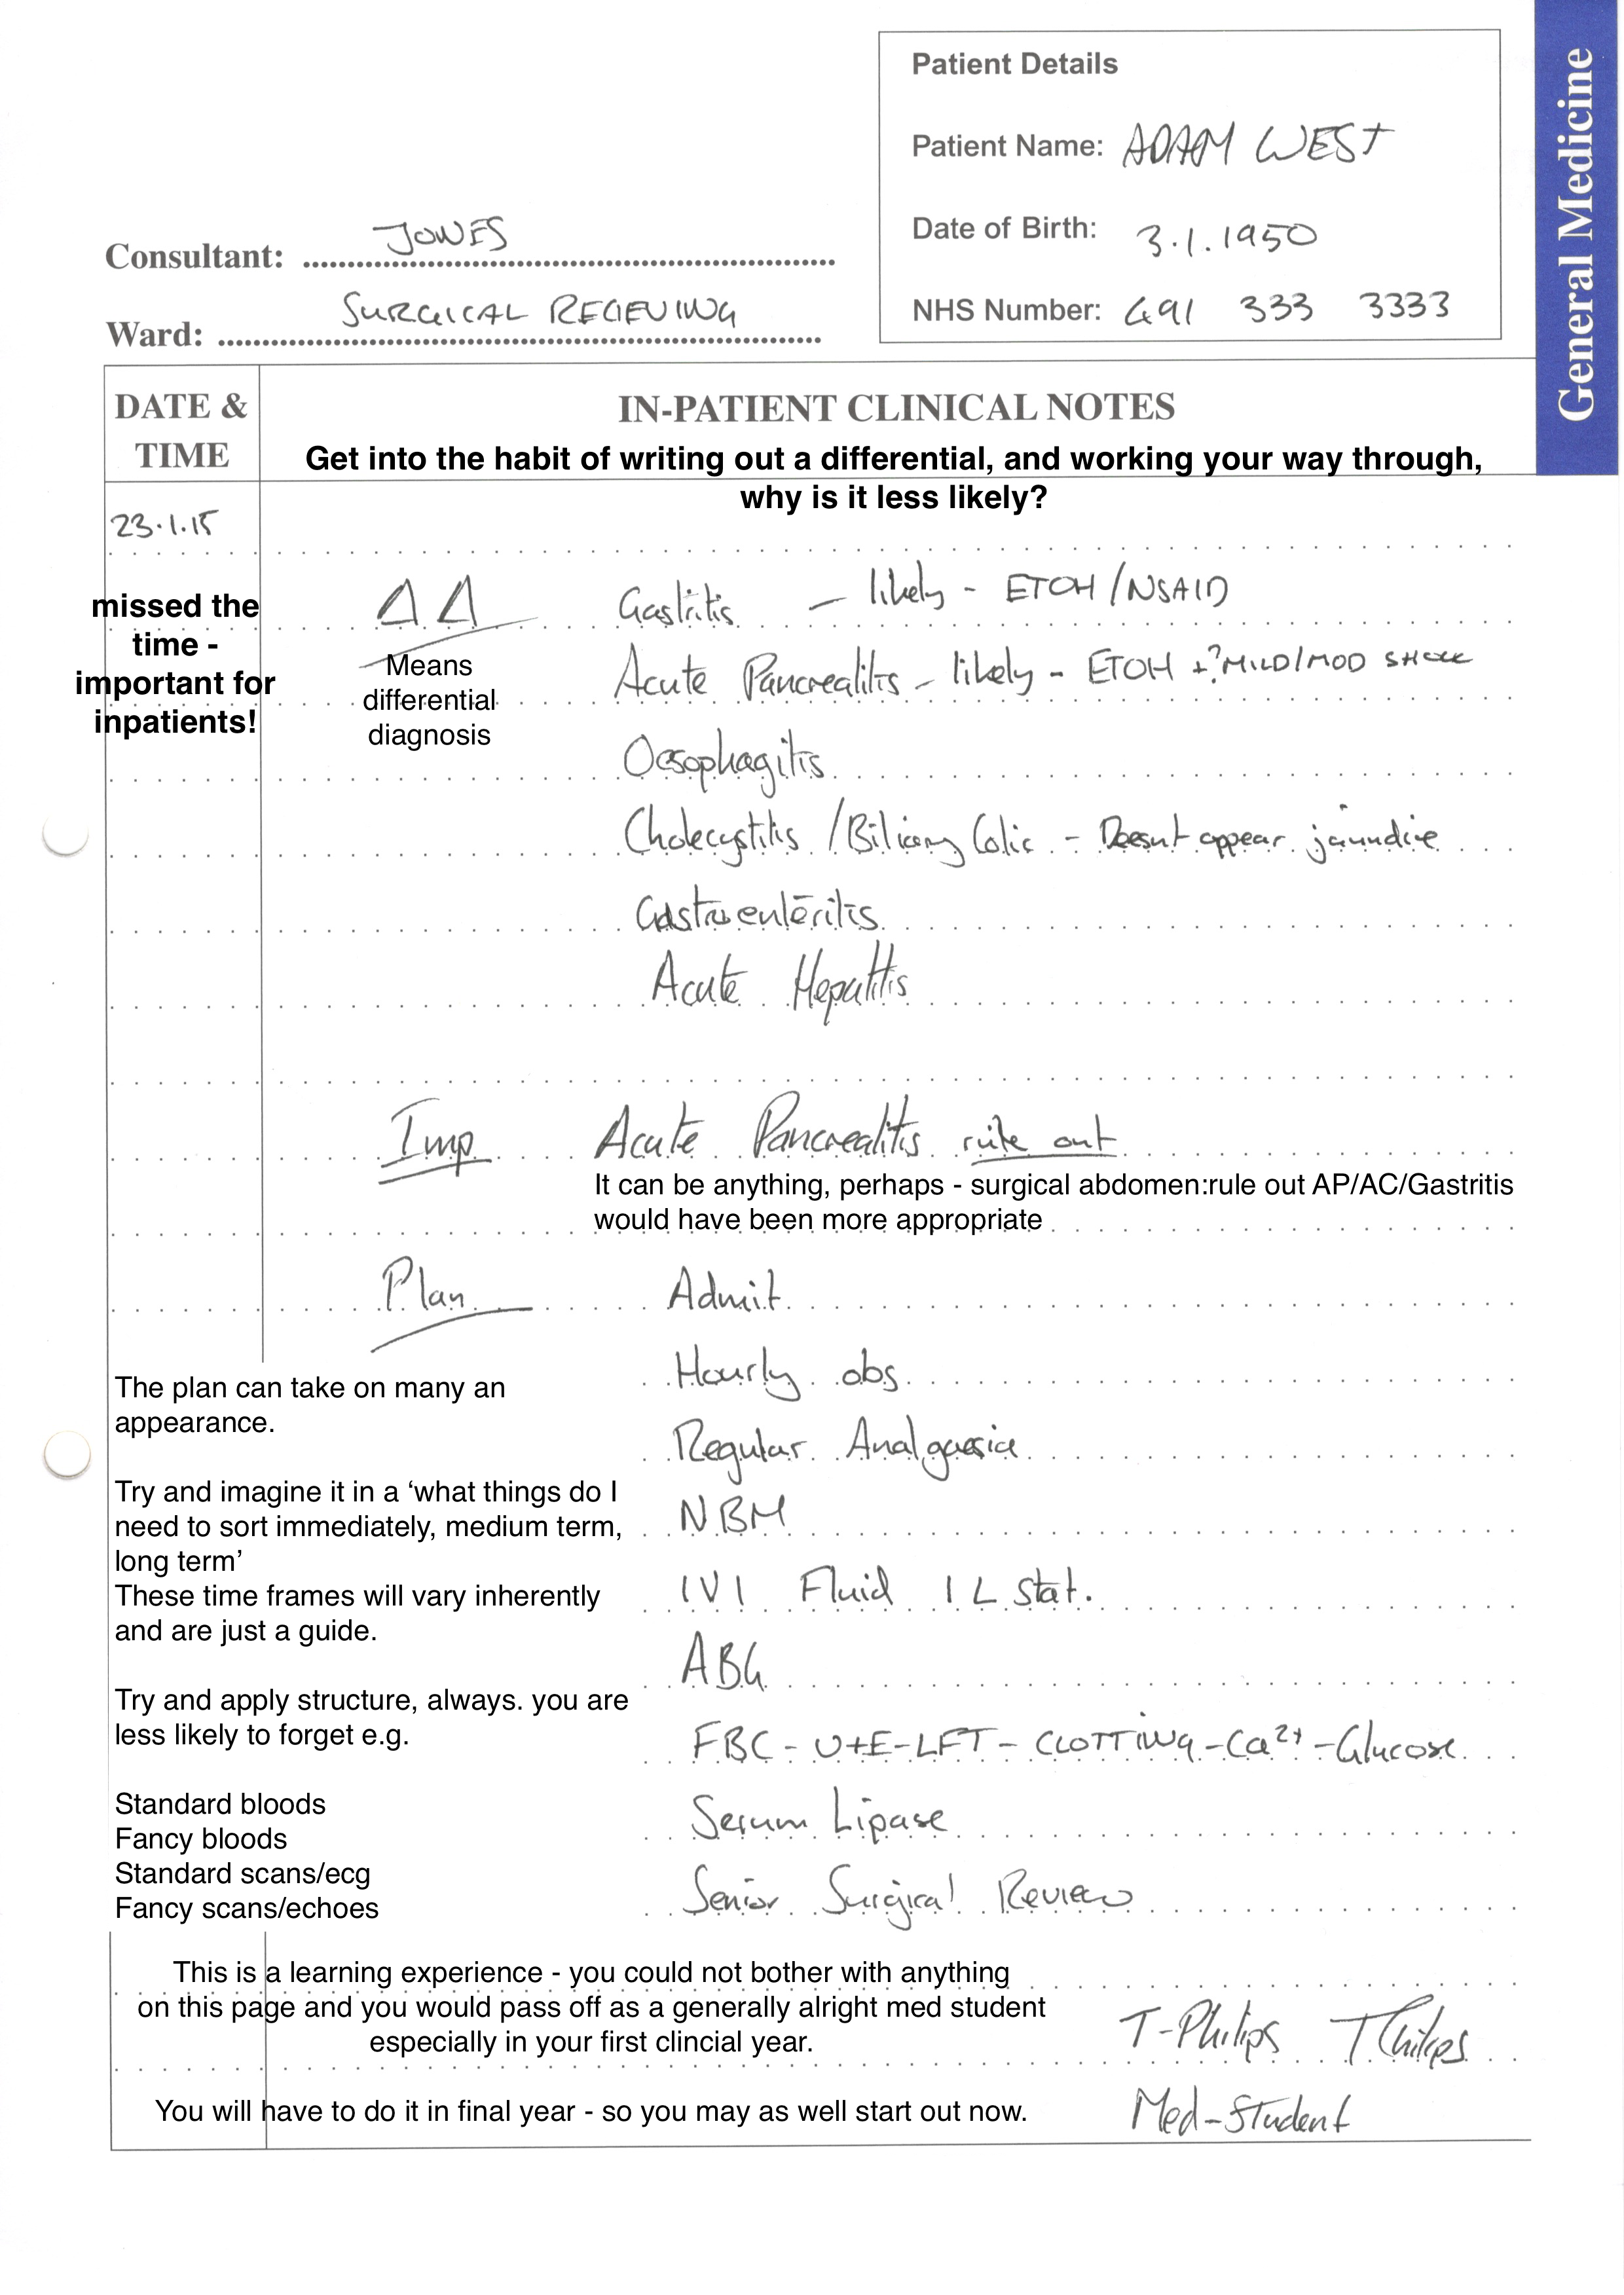 General Medicine
Patient Details
Patient Name: ADAM WEST
Date of Birth: 3.1.1950
NHS Number: 691 333 3333
Consultant: JONES
Ward: SURGICAL RECIEVING
DATE & TIME
IN-PATIENT CLINICAL NOTES
Get into the habit of writing out a differential, and working your way through,
why is it less likely?
23.1.15
missed the
time -
important for
inpatients!
ΔΔ
Means
differential
diagnosis
Gastritis - likely - ETOH/NSAID
Acute Pancreatitis - likely - ETOH +? MILD/MOD SHOCK
Oesophagitis
Cholecystitis / Biliary Colic - Doesnt appear jaundice
Gastroenteritis
Acute Hepatitis
Imp Acute Pancreatitis rule out
It can be anything, perhaps - surgical abdomen:rule out AP/AC/Gastritis
would have been more appropriate
Plan
Admit
Hourly obs
Regular Analgaesia
NBM
IVI Fluid 1L Stat.
ABG
FBC - U+E - LFT - CLOTTING - Ca²⁺ - Glucose
Serum Lipase
Senior Surgical Review
The plan can take on many an
appearance.
Try and imagine it in a ‘what things do I
need to sort immediately, medium term,
long term’
These time frames will vary inherently
and are just a guide.
Try and apply structure, always. you are
less likely to forget e.g.
Standard bloods
Fancy bloods
Standard scans/ecg
Fancy scans/echoes
This is a learning experience - you could not bother with anything
on this page and you would pass off as a generally alright med student
especially in your first clincial year.
You will have to do it in final year - so you may as well start out now.
T-Philips TPhilips
Med-Student